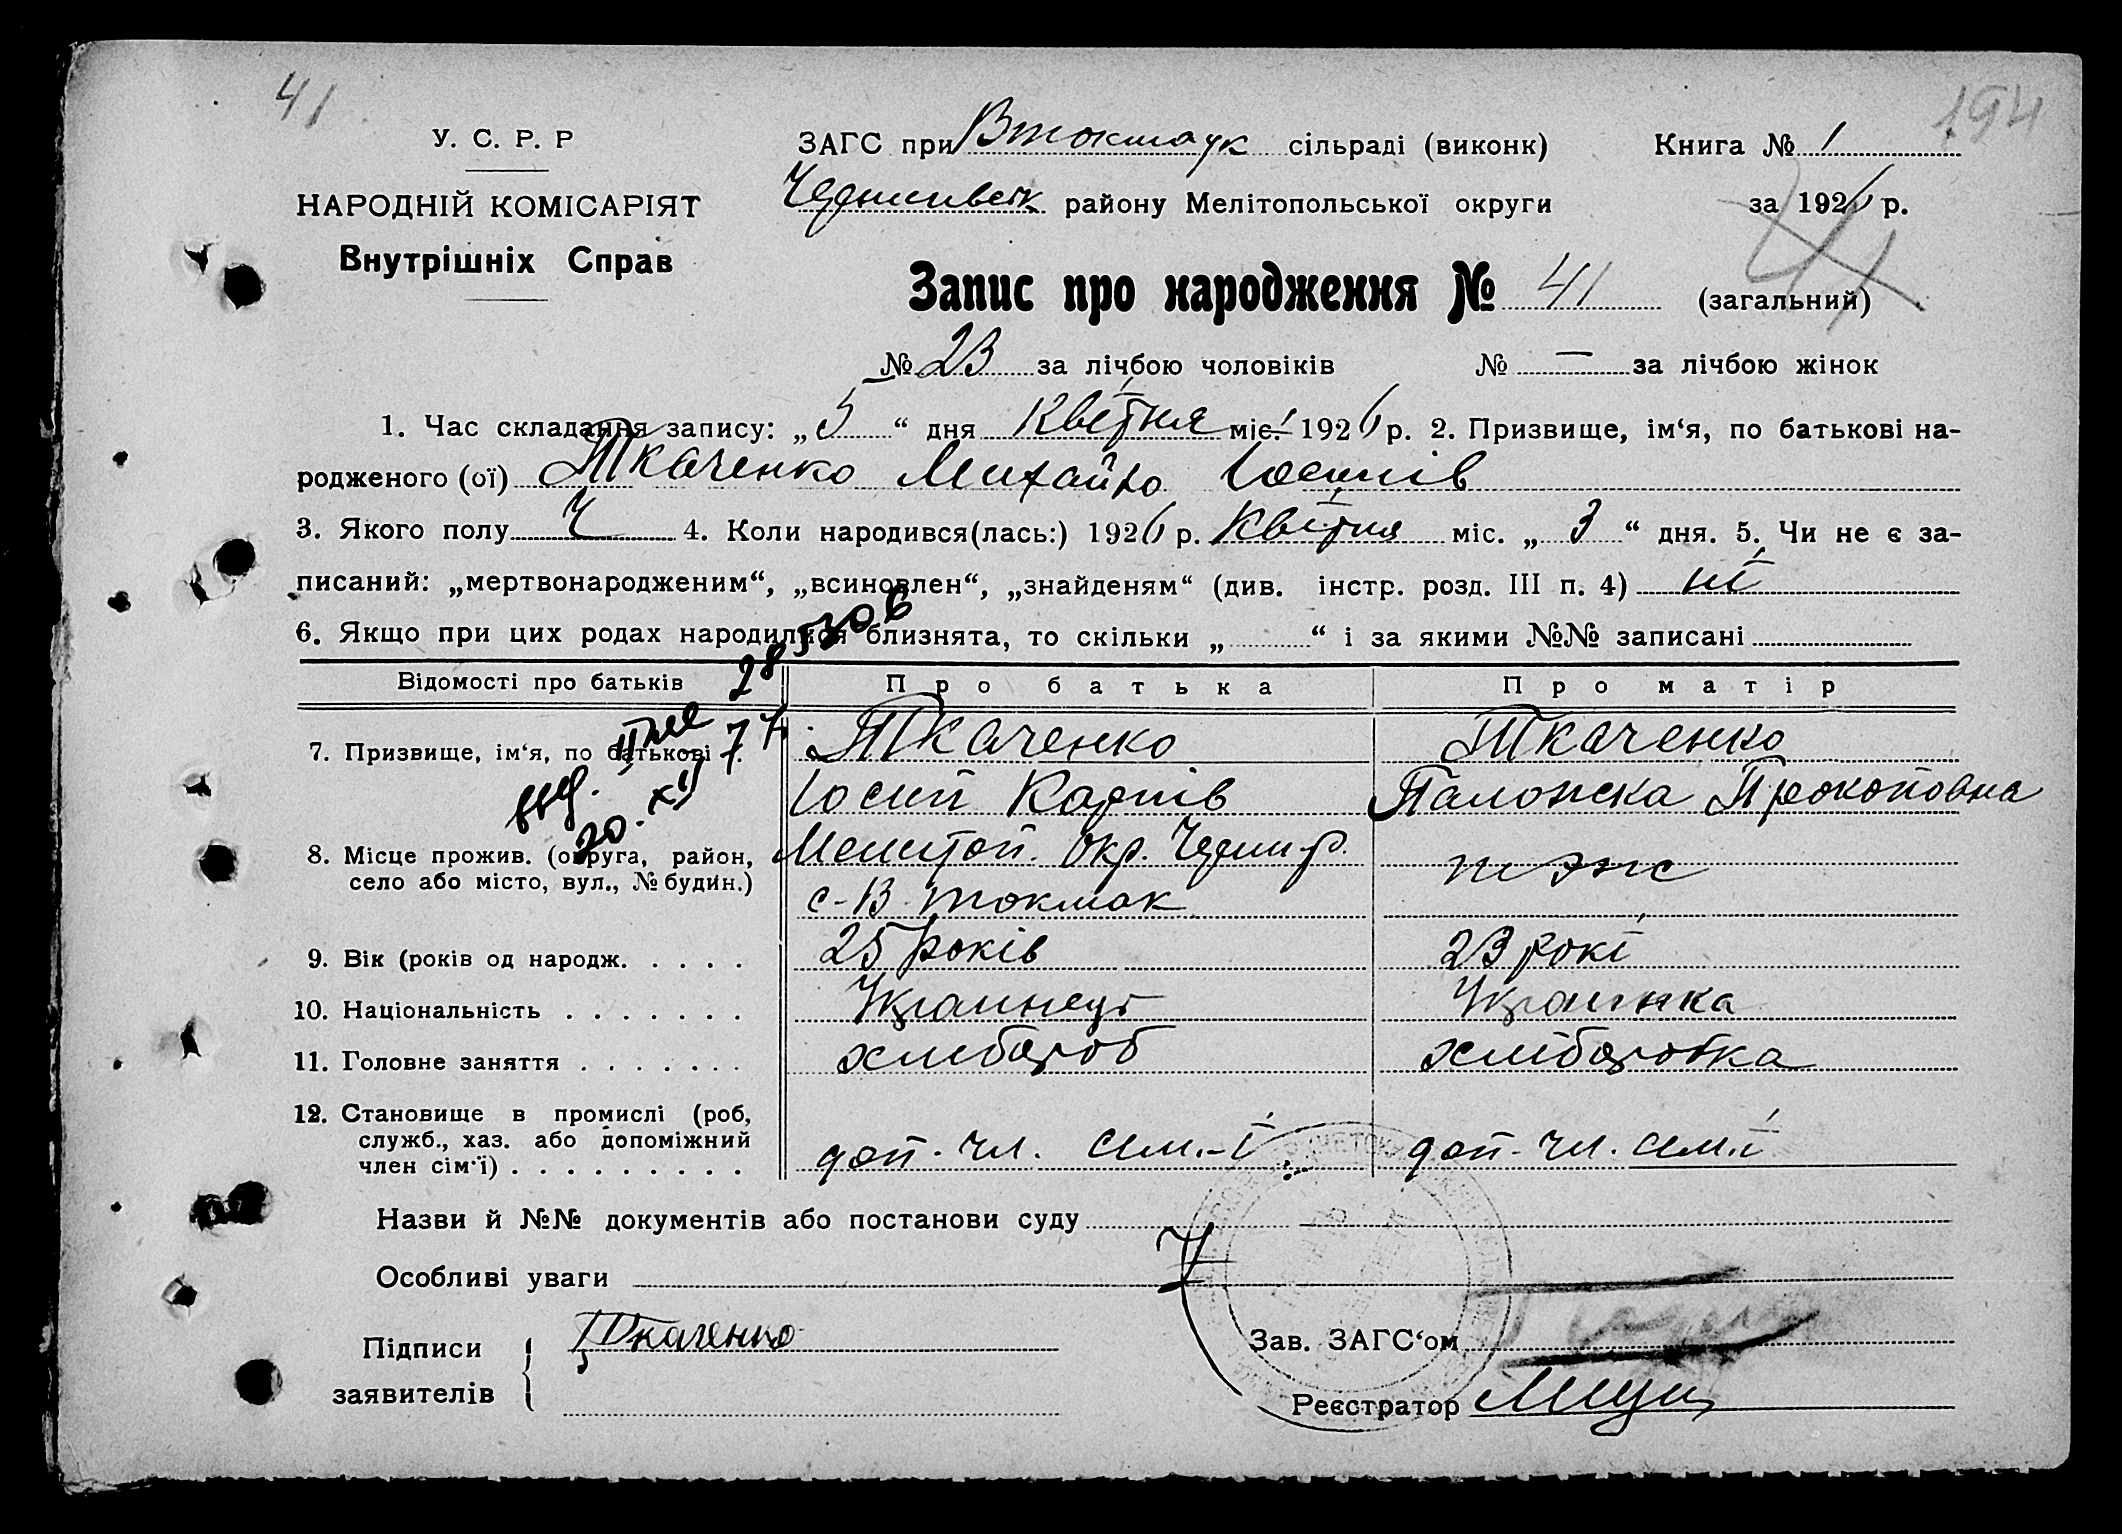 41
194
У. С. Р. Р
НАРОДНІЙ КОМІСАРІЯТ
Внутрішніх Справ
ЗАГС при Втокмацк сільраді (виконк)
Книга № 1
району Мелітопольської округи
за 1926 р.
41
Запис про народження № 41 (загальний)
№ 23 за лічбою чоловіків № — за лічбою жінок
1. Час складання запису: „5“ дня Квітня міс. 1926 р. 2. Призвище, ім‘я, по батькові на-
родженого (ої) Ткаченко Михайло Іосипів
3. Якого полу Ч 4. Коли народився(лась:) 1926 р. Квітня міс. „3“ дня. 5. Чи не є за-
писаний: „мертвонародженим“, „всиновлен“, „знайденям“ (див. інстр. розд. III п. 4) ні
6. Якщо при цих родах народилися близнята, то скільки „ “ і за якими №№ записані
Відомості про батьків Про батька Про матір
7. Призвище, ім‘я, по батькові . Ткаченко Ткаченко
Іосип Карпів Палажска Прокоповна
8. Місце прожив. (округа, район, село або місто, вул., № будин.) Мелитоп. Окр. Черни р. тоже
с-В-токмак
9. Вік (років од народж. . . . . 25 років 23 рокі
10. Національність . . . . . . . Украинець Украинка
11. Головне заняття . . . . . . . хлибороб хліборобка
12. Становище в промислі (роб,
служб., хаз. або допоміжний
член сім‘ї) . . . . . . . . . доп. чл. сем.-ї доп. чл. сем.ї
20. XII 77
Назви й №№ документів або постанови суду
Особливі уваги
Підписи
заявителів
Ткаченко
Зав. ЗАГС‘ом
Реєстратор